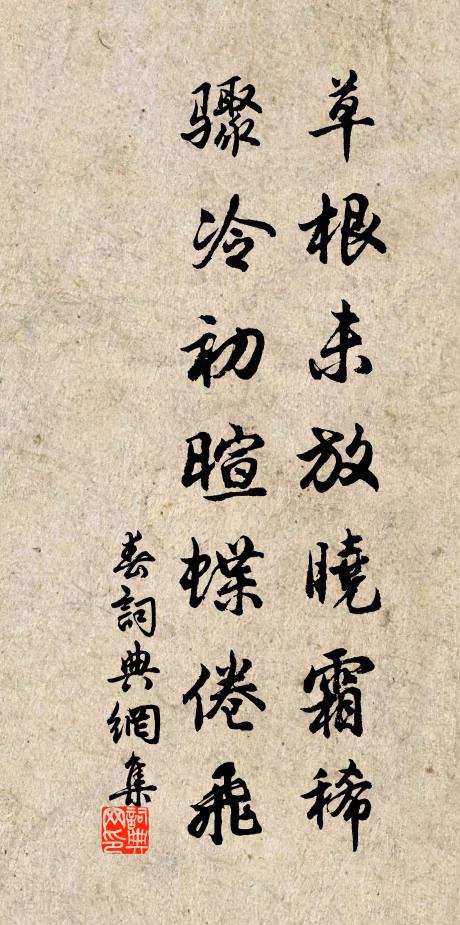 草根未放曉霜稀
驟冷初暄蝶倦飛
春詞典網集
詞典
网印